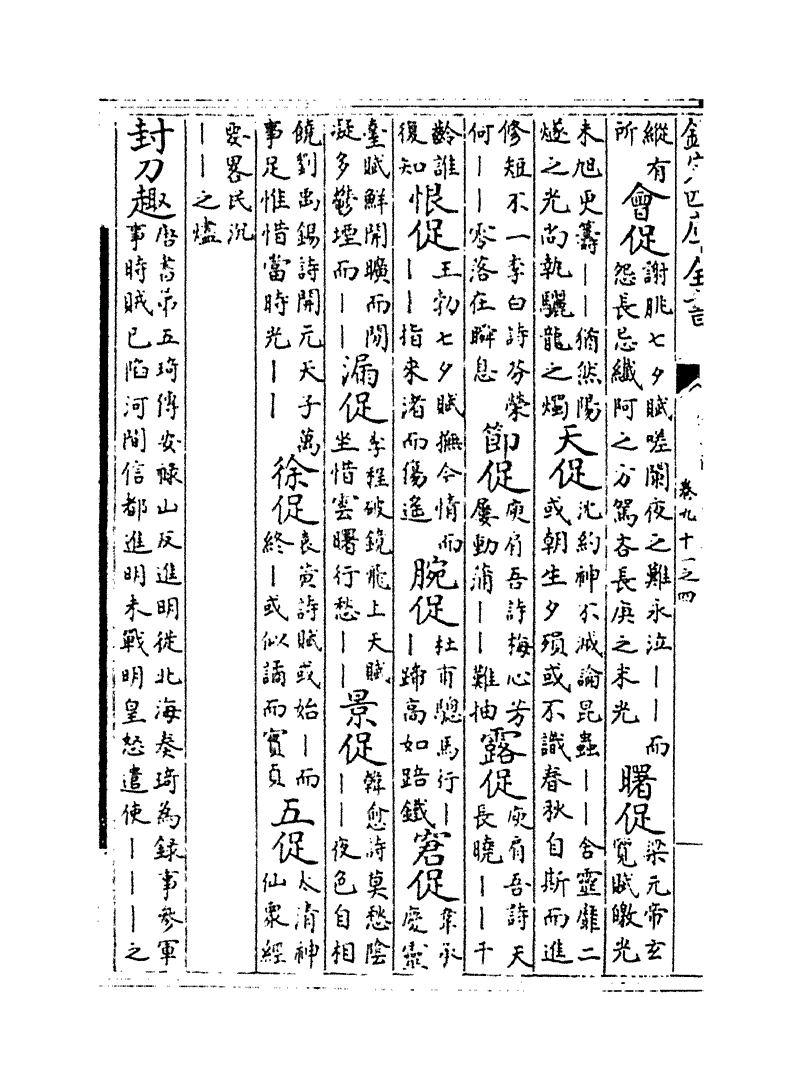 欽定四庫全書 卷九十一之四
縱有所 會促 謝朓七夕賦嗟闌夜之難永泣丨丨而怨長忌纖阿之方駕吝長庚之末光 曙促 梁元帝玄覽賦皦光
未旭更籌丨丨猶然陽燧之光尚執驪龍之燭 夭促 沈約神不滅論昆蟲丨丨含靈靡二或朝生夕殞或不識春秋自斯而進
修短不一李白詩芬榮何丨丨零落在瞬息 節促 庾肩吾詩梅心芳屢動蒲丨丨難抽 露促 庾肩吾詩天長曉丨丨千
齡誰復知 恨促 王勃七夕賦撫今情而丨丨指來渚而傷遙 腕促 杜甫驄馬行丨丨蹄高如踣鐵 窘促 韋承慶靈
臺賦鮮開曠而閒凝多鬱堙而丨丨 漏促 李程破鏡飛上天賦坐惜雲曙行愁丨丨 景促 韓愈詩莫愁陰丨丨夜色自相
饒劉禹錫詩開元天子萬事足惟惜當時光丨丨 徐促 袁黃詩賦或始丨而終丨或似譎而實貞 五促 太清神仙眾經
要畧民沉丨丨之爐
封刀趣 唐書第五琦傳安祿山反進明徙北海奏琦為錄事參軍事時賊已陷河間信都進明未戰明皇怒遣使丨丨丨之